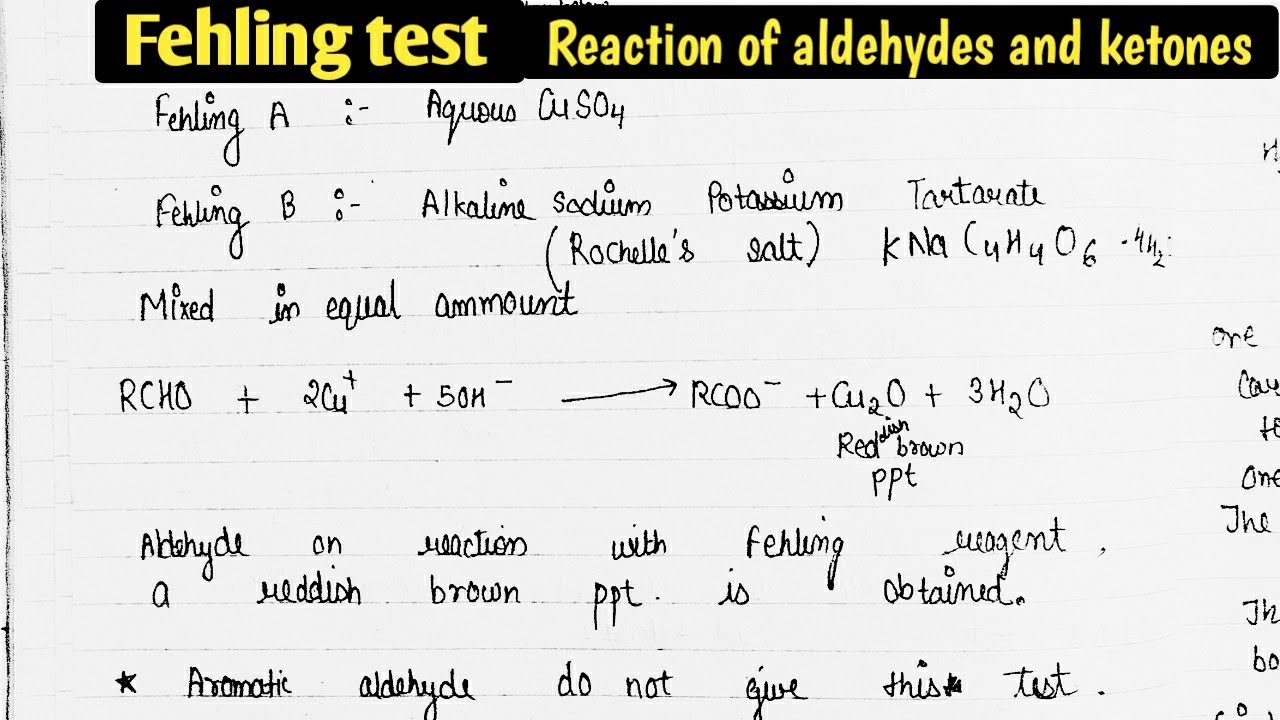 Fehling test Reaction of aldehydes and ketones
Fehling A :- Aquous CuSO4
Fehling B :- Alkaline Sodium Potassium Tartarate
(Rochelle's salt) KNaC4H4O6 .4H2
Mixed in equal ammount
RCHO + 2Cu+ + 5OH- → RCOO- + Cu2O + 3H2O
Reddish brown
ppt
one
Cau
to
one
The
Aldehyde on reaction with Fehling reagent,
a reddish brown ppt. is obtained.
Th
bo
* Aromatic aldehyde do not give this* test.